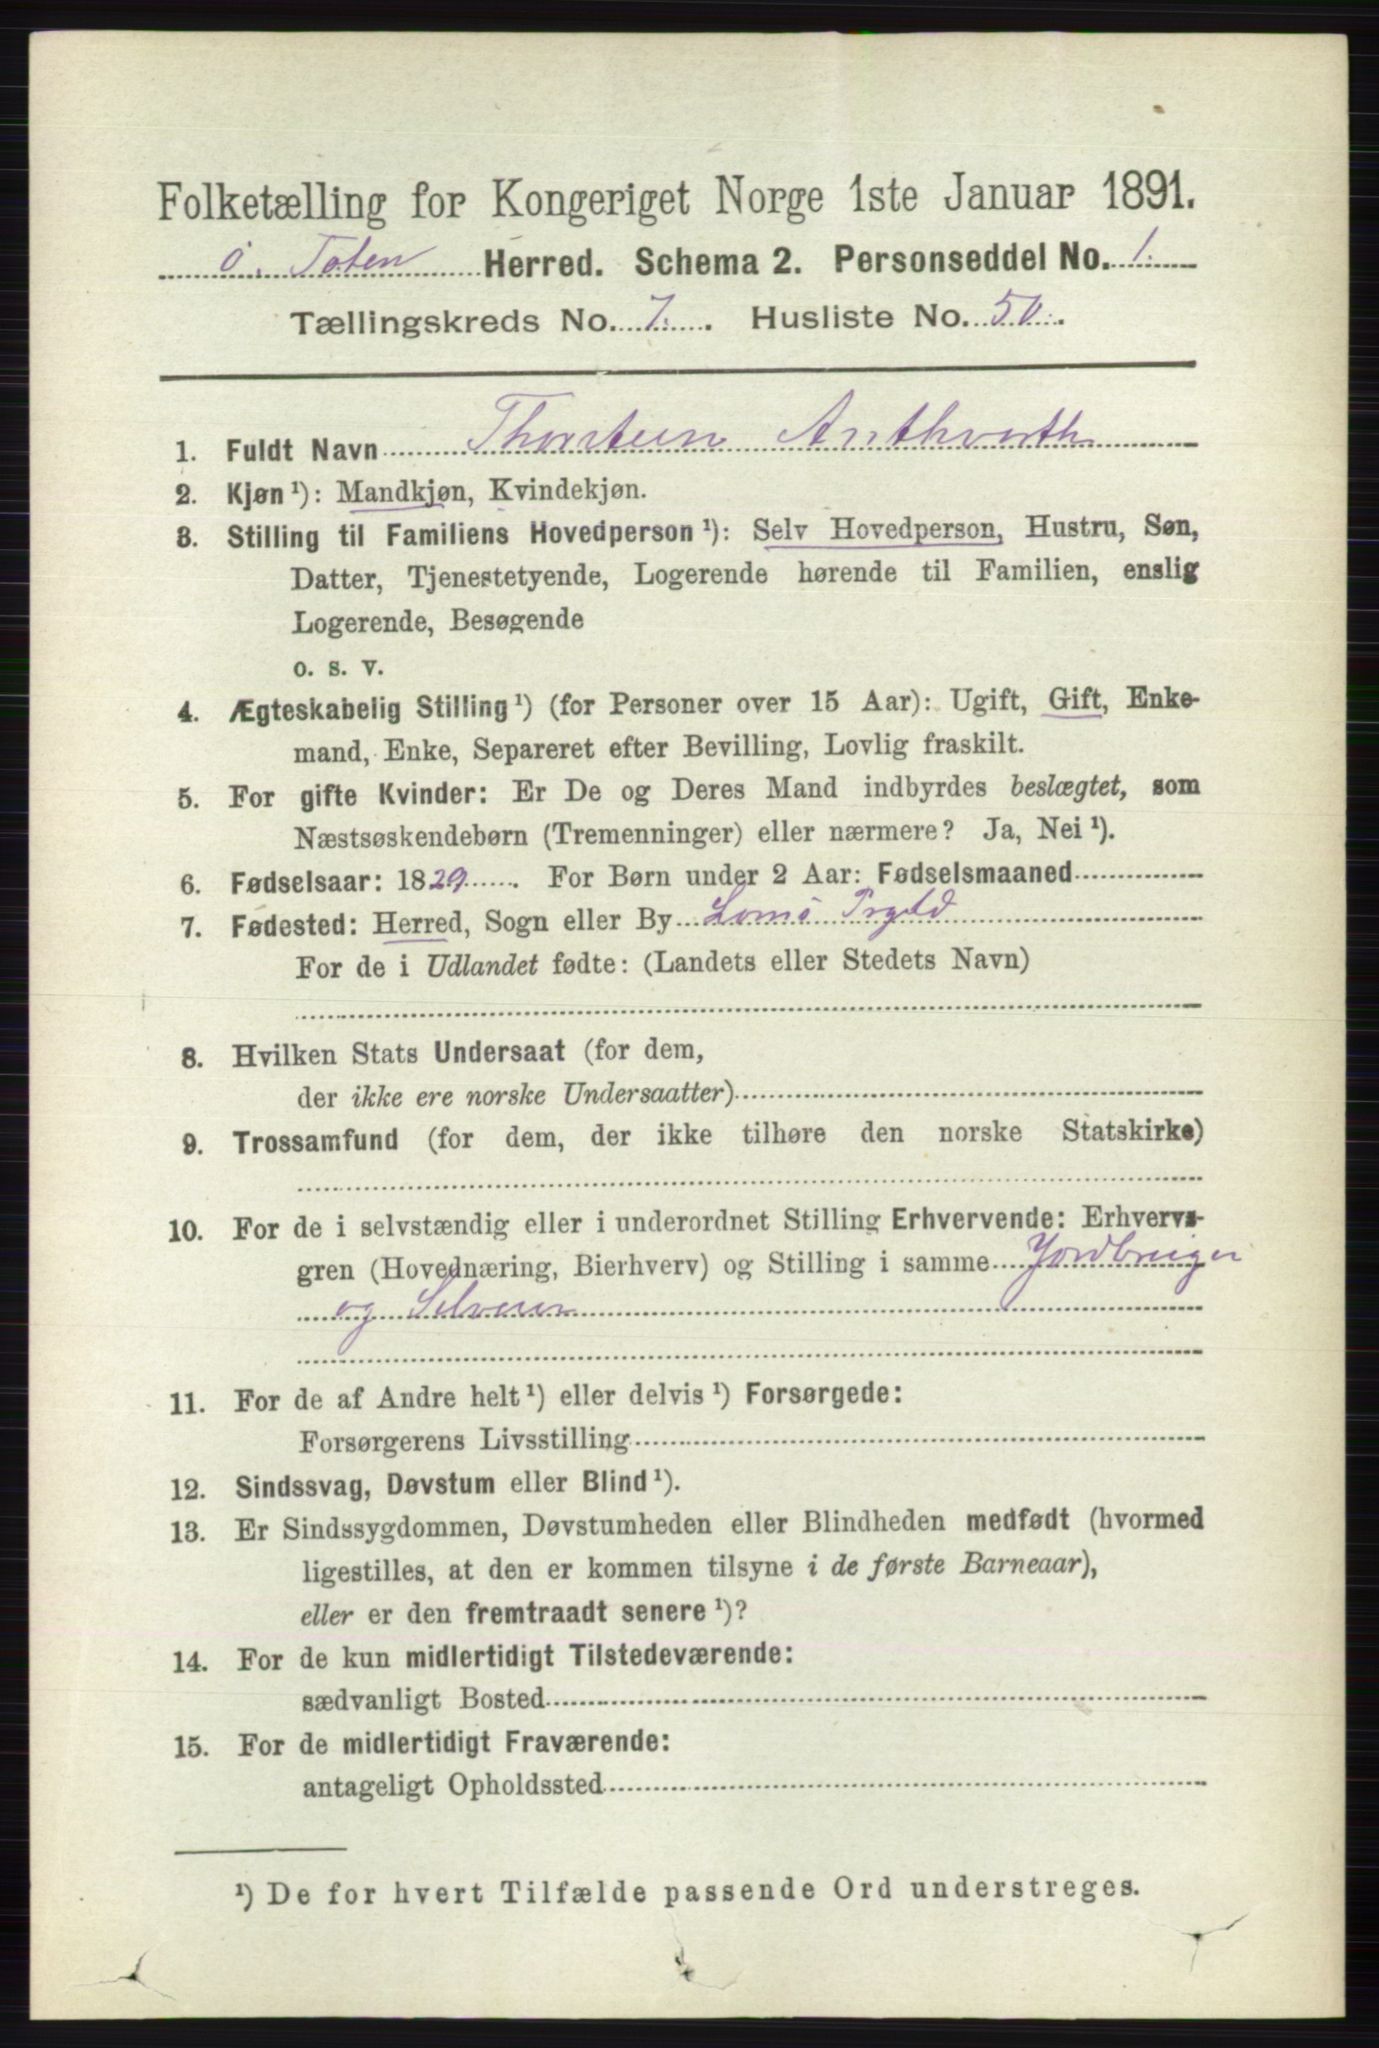 Folketælling for Kongeriget Norge 1ste Januar 1891.
Ö. Toten Herred. Schema 2. Personseddel No. 1.
Tællingskreds No. 7. Husliste No. 50.
1. Fuldt Navn Thorsteen Anthvorth
2. Kjøn ¹): Mandkjøn, Kvindekjøn.
3. Stilling til Familiens Hovedperson ¹): Selv Hovedperson, Hustru, Søn,
Datter, Tjenestetyende, Logerende hørende til Familien, enslig
Logerende, Besøgende
o. s. v.
4. Ægteskabelig Stilling ¹) (for Personer over 15 Aar): Ugift, Gift, Enke-
mand, Enke, Separeret efter Bevilling, Lovlig fraskilt.
5. For gifte Kvinder: Er De og Deres Mand indbyrdes beslægtet, som
Næstsøskendebørn (Tremenninger) eller nærmere? Ja, Nei ¹).
6. Fødselsaar: 1829. For Børn under 2 Aar: Fødselsmaaned
7. Fødested: Herred, Sogn eller By Loms Prgld
For de i Udlandet fødte: (Landets eller Stedets Navn)
8. Hvilken Stats Undersaat (for dem,
der ikke ere norske Undersaatter)
9. Trossamfund (for dem, der ikke tilhøre den norske Statskirke)
10. For de i selvstændig eller i underordnet Stilling Erhvervende: Erhvervs-
gren (Hovednæring, Bierhverv) og Stilling i samme Jordbruger
og Selveier
11. For de af Andre helt ¹) eller delvis ¹) Forsørgede:
Forsørgerens Livsstilling
12. Sindssvag, Døvstum eller Blind ¹).
13. Er Sindssygdommen, Døvstumheden eller Blindheden medfødt (hvormed
ligestilles, at den er kommen tilsyne i de første Barneaar),
eller er den fremtraadt senere ¹)?
14. For de kun midlertidigt Tilstedeværende:
sædvanligt Bosted
15. For de midlertidigt Fraværende:
antageligt Opholdssted
¹) De for hvert Tilfælde passende Ord understreges.